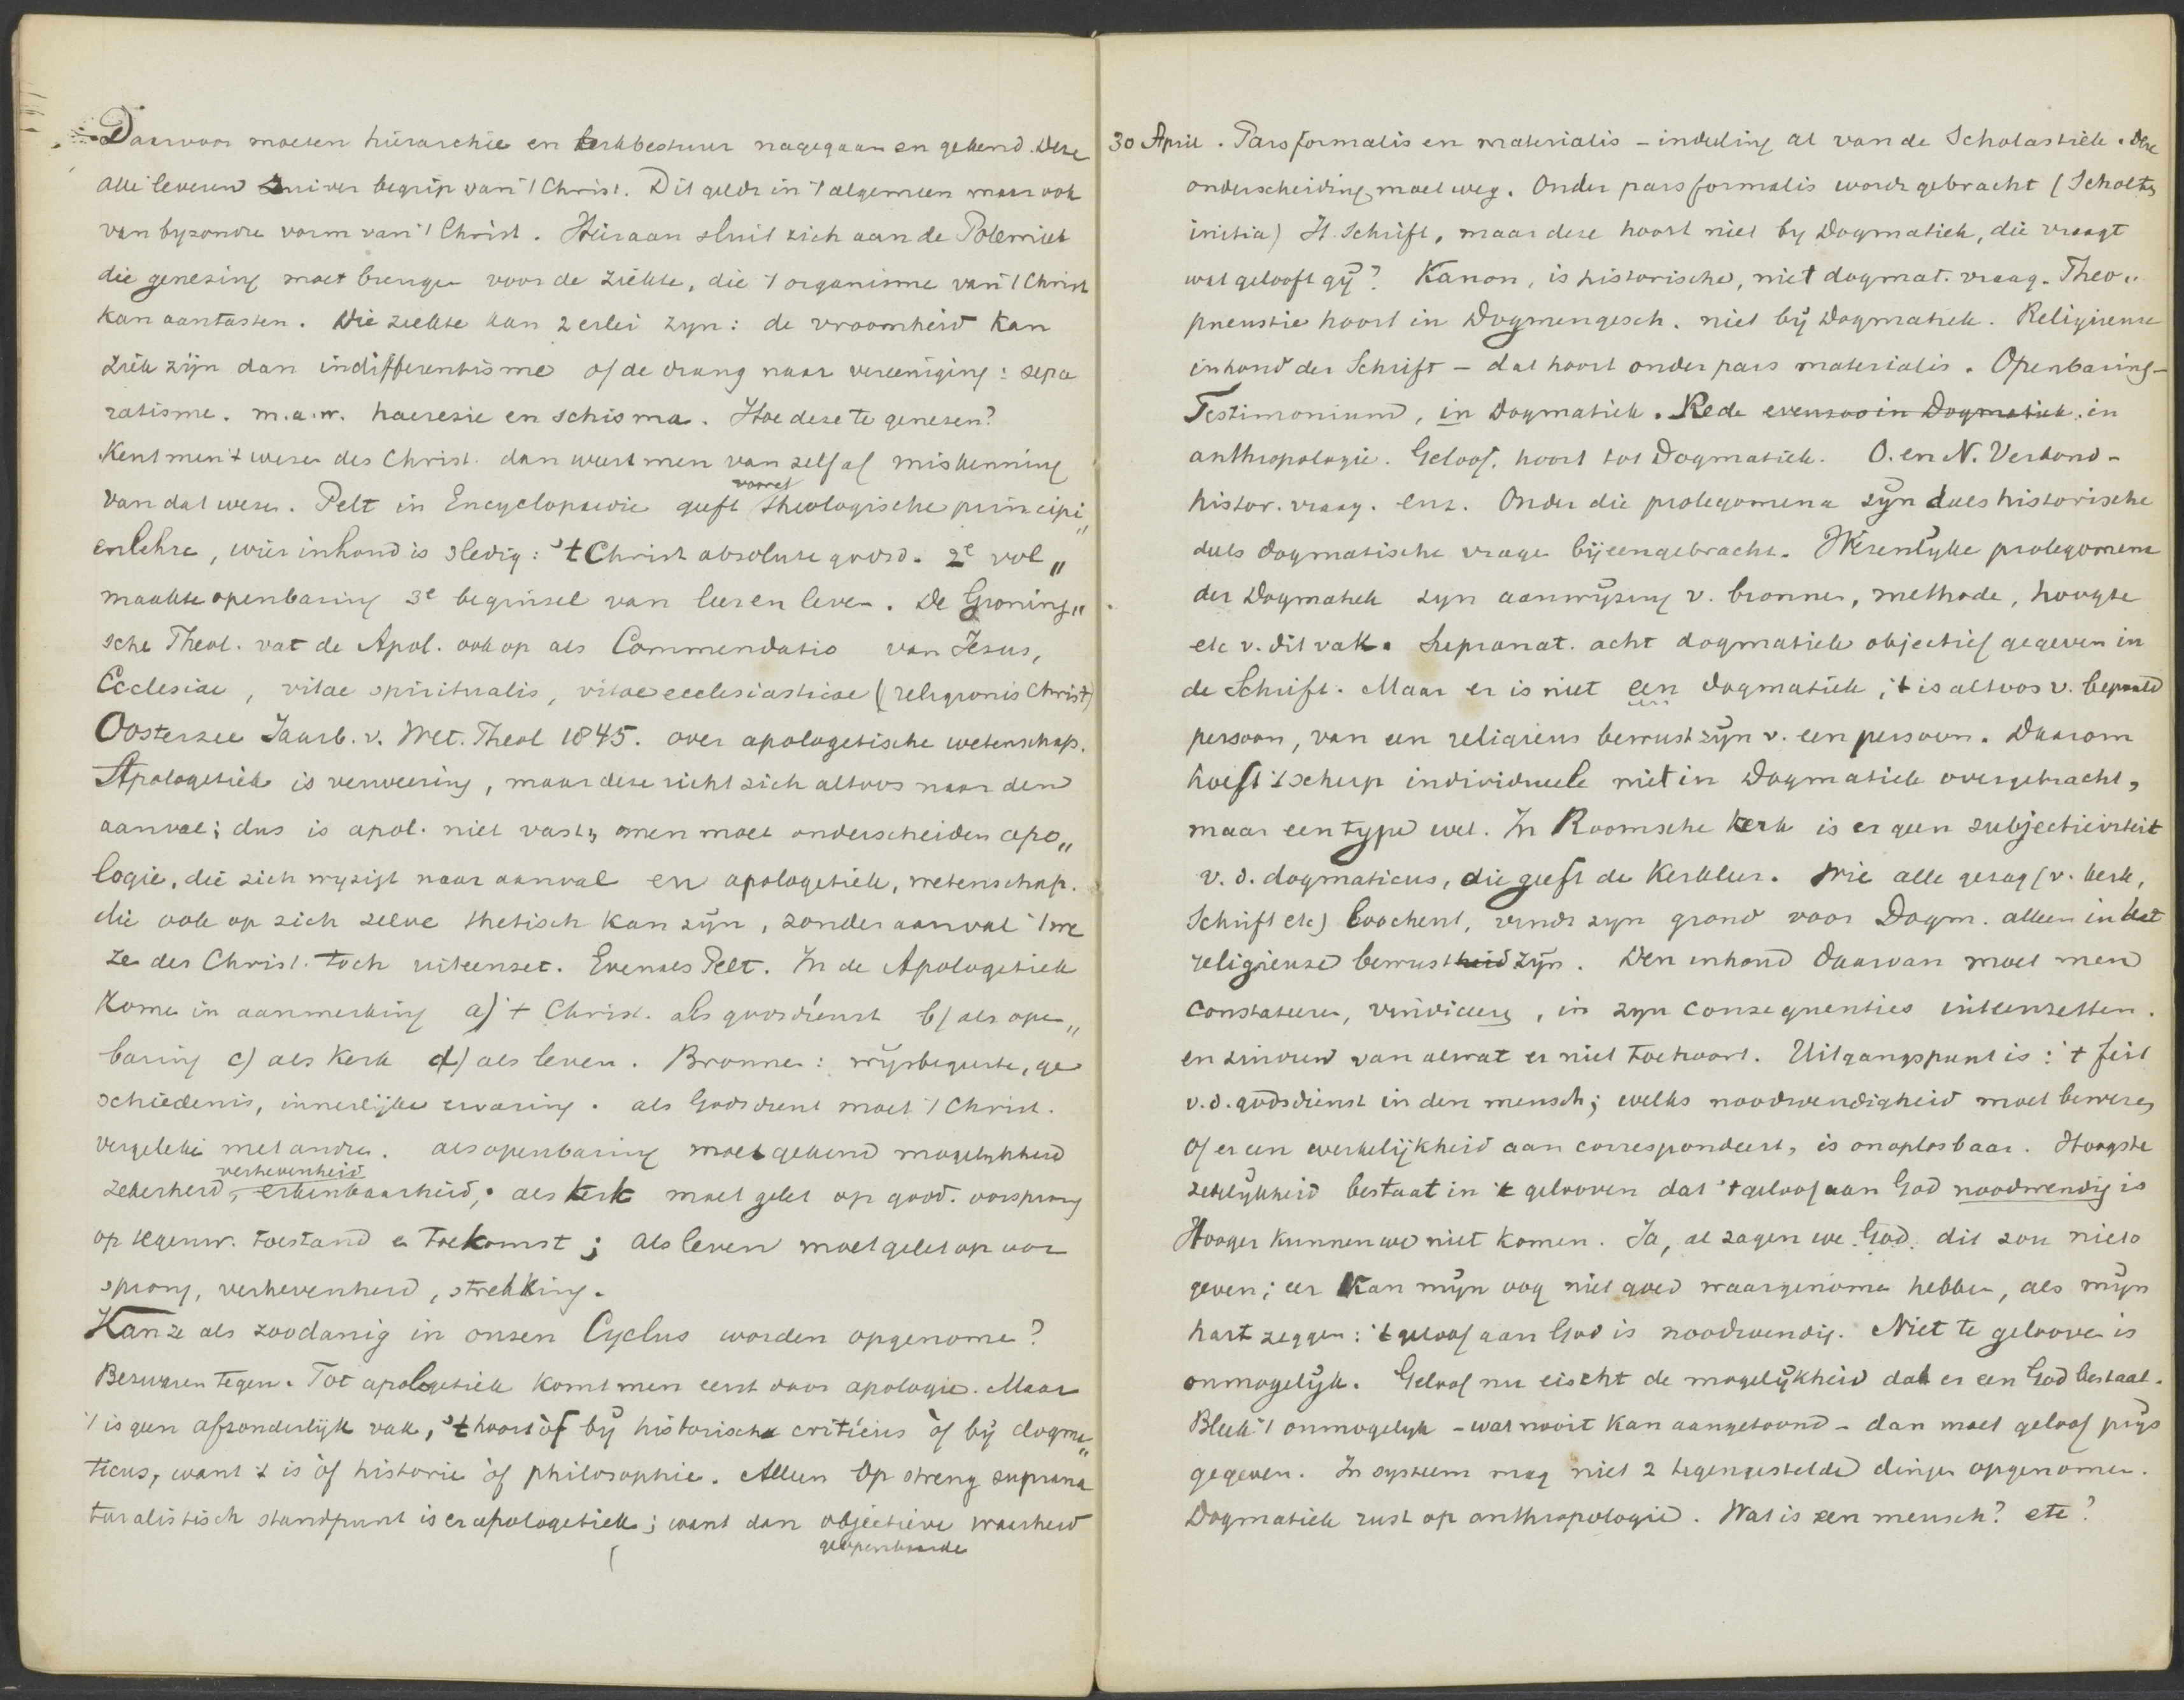 Daarvoor moeten hiërarchie en kerkbestuur nagegaan en gekend. Deze
alle leveren zuiver begrip van 't Christ. Dit geldt in 't algemeen maar ook
van byzondre vorm van 't Christ. Hieraan sluit zich aan de Polemiek
die genezing moet brengen voor de ziekte, die 't organisme van 't Christ
kan aantasten. Die ziekte kan 2erlei zyn: de vroomheid kan
ziek zijn dan indifferentisme of de drang naar vereeniging: sepa
ratisme. m.a.w. haeresie en schisma. Hoe deze te genezen?
Kent men 't wezen des Christ. dan weert men van zelf af miskenning
van dat wezen. Pelt in Encyclopaedie geeft vooraf theologische principi„
enlehre, wier inhoud is 3ledig: 't Christ absolute godsd. 2e vol„
maakte openbaring 3e beginsel van leer en leven. De Groning„
sche Theol. vat de Apol. ook op als Commendatio van Jesus,
Ecclesiae, vitae spiritualis, vitae ecclesiasticae (religionis Christ)
Oosterzee Jaarb. v. Wet. Theol 1845. over apologetische wetenschap.
Apologetiek is verweering, maar deze richt zich altoos naar den
aanval; dus is apol. niet vast, men moet onderscheiden apo„
logie, die zich wyzigt naar aanval en apologetiek, wetenschap.
die ook op zich zelve thetisch kan zijn, zonder aanval 't we
ze des Christ. toch uiteenzet. Evenals Pelt. In de Apologetiek
kome in aanmerking a) 't Christ. als godsdienst b) als open„
baring c) als Kerk d) als leven. Bronnen: wijsbegeerte, ge
schiedenis, innerlijke ervaring. als Godsdienst moet 't Christ.
vergeleke met andre. als openbaring moet gekend mogelykheid
zekerheid, verhevenheid erkenbaarheid,. als kerk moet gelet op godd. oorsprong
op tegenw. toestand en toekomst; als leven moet gelet op oor
sprong, verhevenheid, strekking.
Kan ze als zoodanig in onzen Cyclus worden opgenome?
Bezwaren tegen. Tot apologetiek komt men eerst door apologie. Maar
't is geen afzonderlijk vak, 't hoort òf bij historische criticus òf bij dogma„
ticus, want 't is òf historie òf philosophie. Alleen op streng suprana
turalistisch standpunt is er apologetiek; want dan objectieve waarheid
geopenbaarde
30 April. Pars formalis en materialis - indeeling al van de Scholastiek. Deze
onderscheiding moet weg. Onder pars formalis wordt gebracht (Scholten
initia) H. Schrift, maar deze hoort niet by Dogmatiek, die vraagt
wat gelooft gij? Kanon, is historische, niet dogmat. vraag. Theo„
pneustie hoort in Dogmengesch. niet bij Dogmatiek. Religieuse
inhoud der Schrift - dat hoort onder pars materialis. Openbaring -
Testimonium, in Dogmatiek. Rede evenzoo in Dogmatiek. in
anthropologie. Geloof, hoort tot Dogmatiek. O. en N. Verbond -
histor. vraag. enz. Onder die prolegomena zijn deels historische
deels dogmatische vragen bijeengebracht. Wezenlyke prolegomena
der Dogmatiek zyn aanwijzing v. bronnen, methode, hoogte
etc v. dit vak. Supranat. acht dogmatiek objectief gegeven in
de Schrift. Maar er is niet een dogmatiek, 't is altoos v. bepaald
persoon, van een religieus bewustzijn v. een persoon. Daarom
hoeft 't scherp individueele niet in Dogmatiek overgebracht,
maar een type wel. In Roomsche Kerk is er geen subjectieviteit
v. d. dogmaticus, die geeft de Kerkleer. Wie alle gezag (v. kerk,
Schrift etc) loochent, vindt zyn grond voor Dogm. alleen in het
religieuse bewustheid zijn. Den inhoud daarvan moet men
constateeren, vindiceeren, in zyn consequenties uiteenzetten.
en zuiveren van alwat er niet toehoort. Uitgangspunt is: 't feit
v.d. godsdienst in den mensch; welks noodwendigheid moet bewezen
Of er een werkelijkheid aan correspondeert, is onoplosbaar. Hoogste
zekerlykheid bestaat in 't gelooven dat 't geloof aan God noodwendig is
Hooger kunnen we niet komen. Ja, al zagen we God. dit zou niets
geven; eer kan mijn oog niet goed waargenome hebben, als mijn
hart zeggen: 't geloof aan God is noodwendig. Niet te gelooven is
onmogelijk. Geloof nu eischt de mogelijkheid dat er een God bestaat.
Bleek 't onmogelyk - wat nooit kan aangetoond - dan moet geloof prijs
gegeven. In systeem mag niet 2 tegengestelde dingen opgenomen.
Dogmatiek rust op anthropologie. Wat is een mensch? etc?